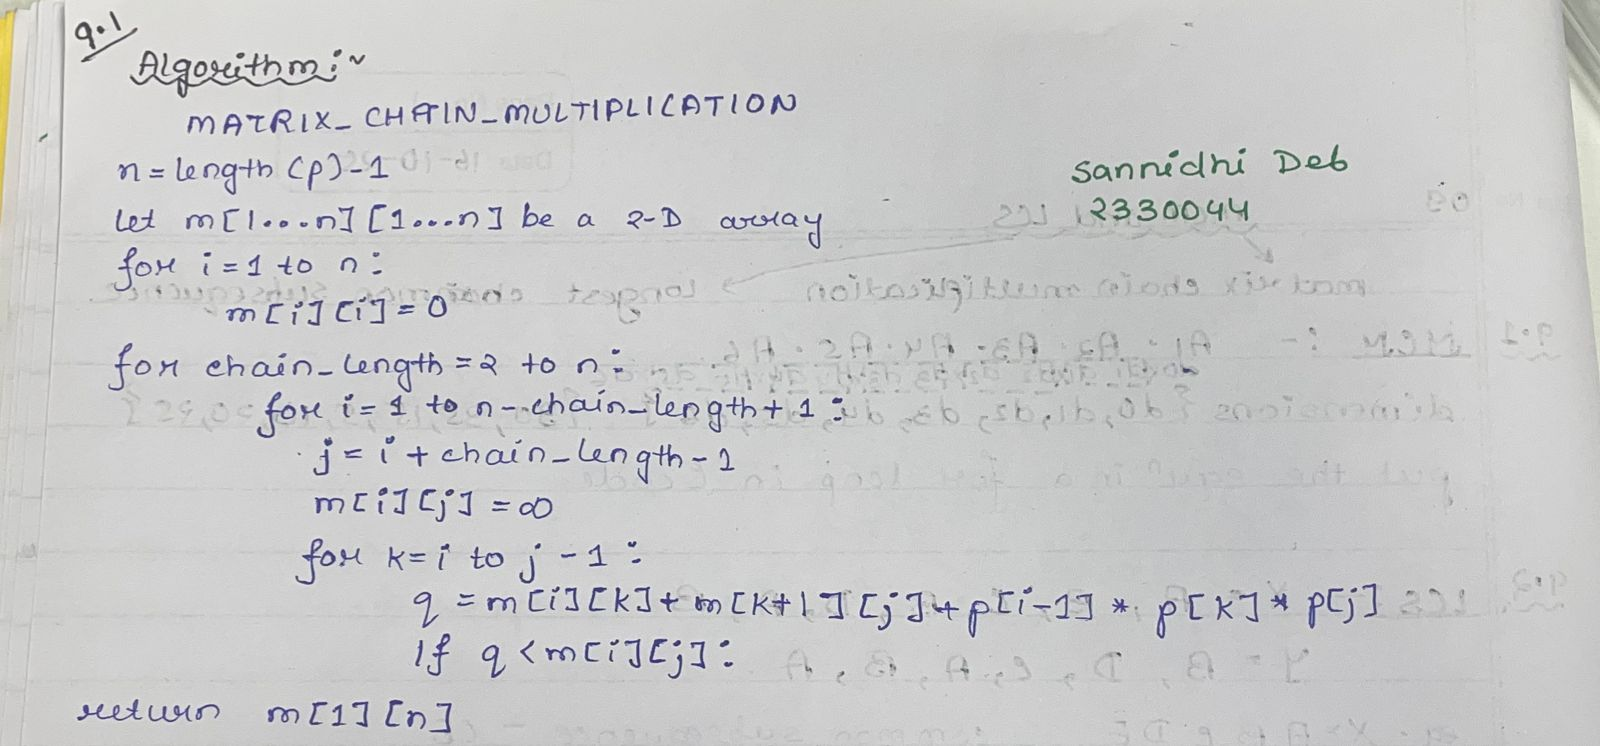 9.1
Algorithm:~
MATRIX_CHAIN_MULTIPLICATION
n = length (p)-1
Sannidhi Deb
let m[1...n][1...n] be a 2-D array
2330044
for i = 1 to n:
m[i][i] = 0
for chain_length = 2 to n:
for i = 1 to n - chain_length + 1:
j = i + chain_length - 1
m[i][j] = ∞
for k = i to j - 1:
q = m[i][k] + m[k+1][j] + p[i-1] * p[k] * p[j]
If q < m[i][j]:
return m[1][n]